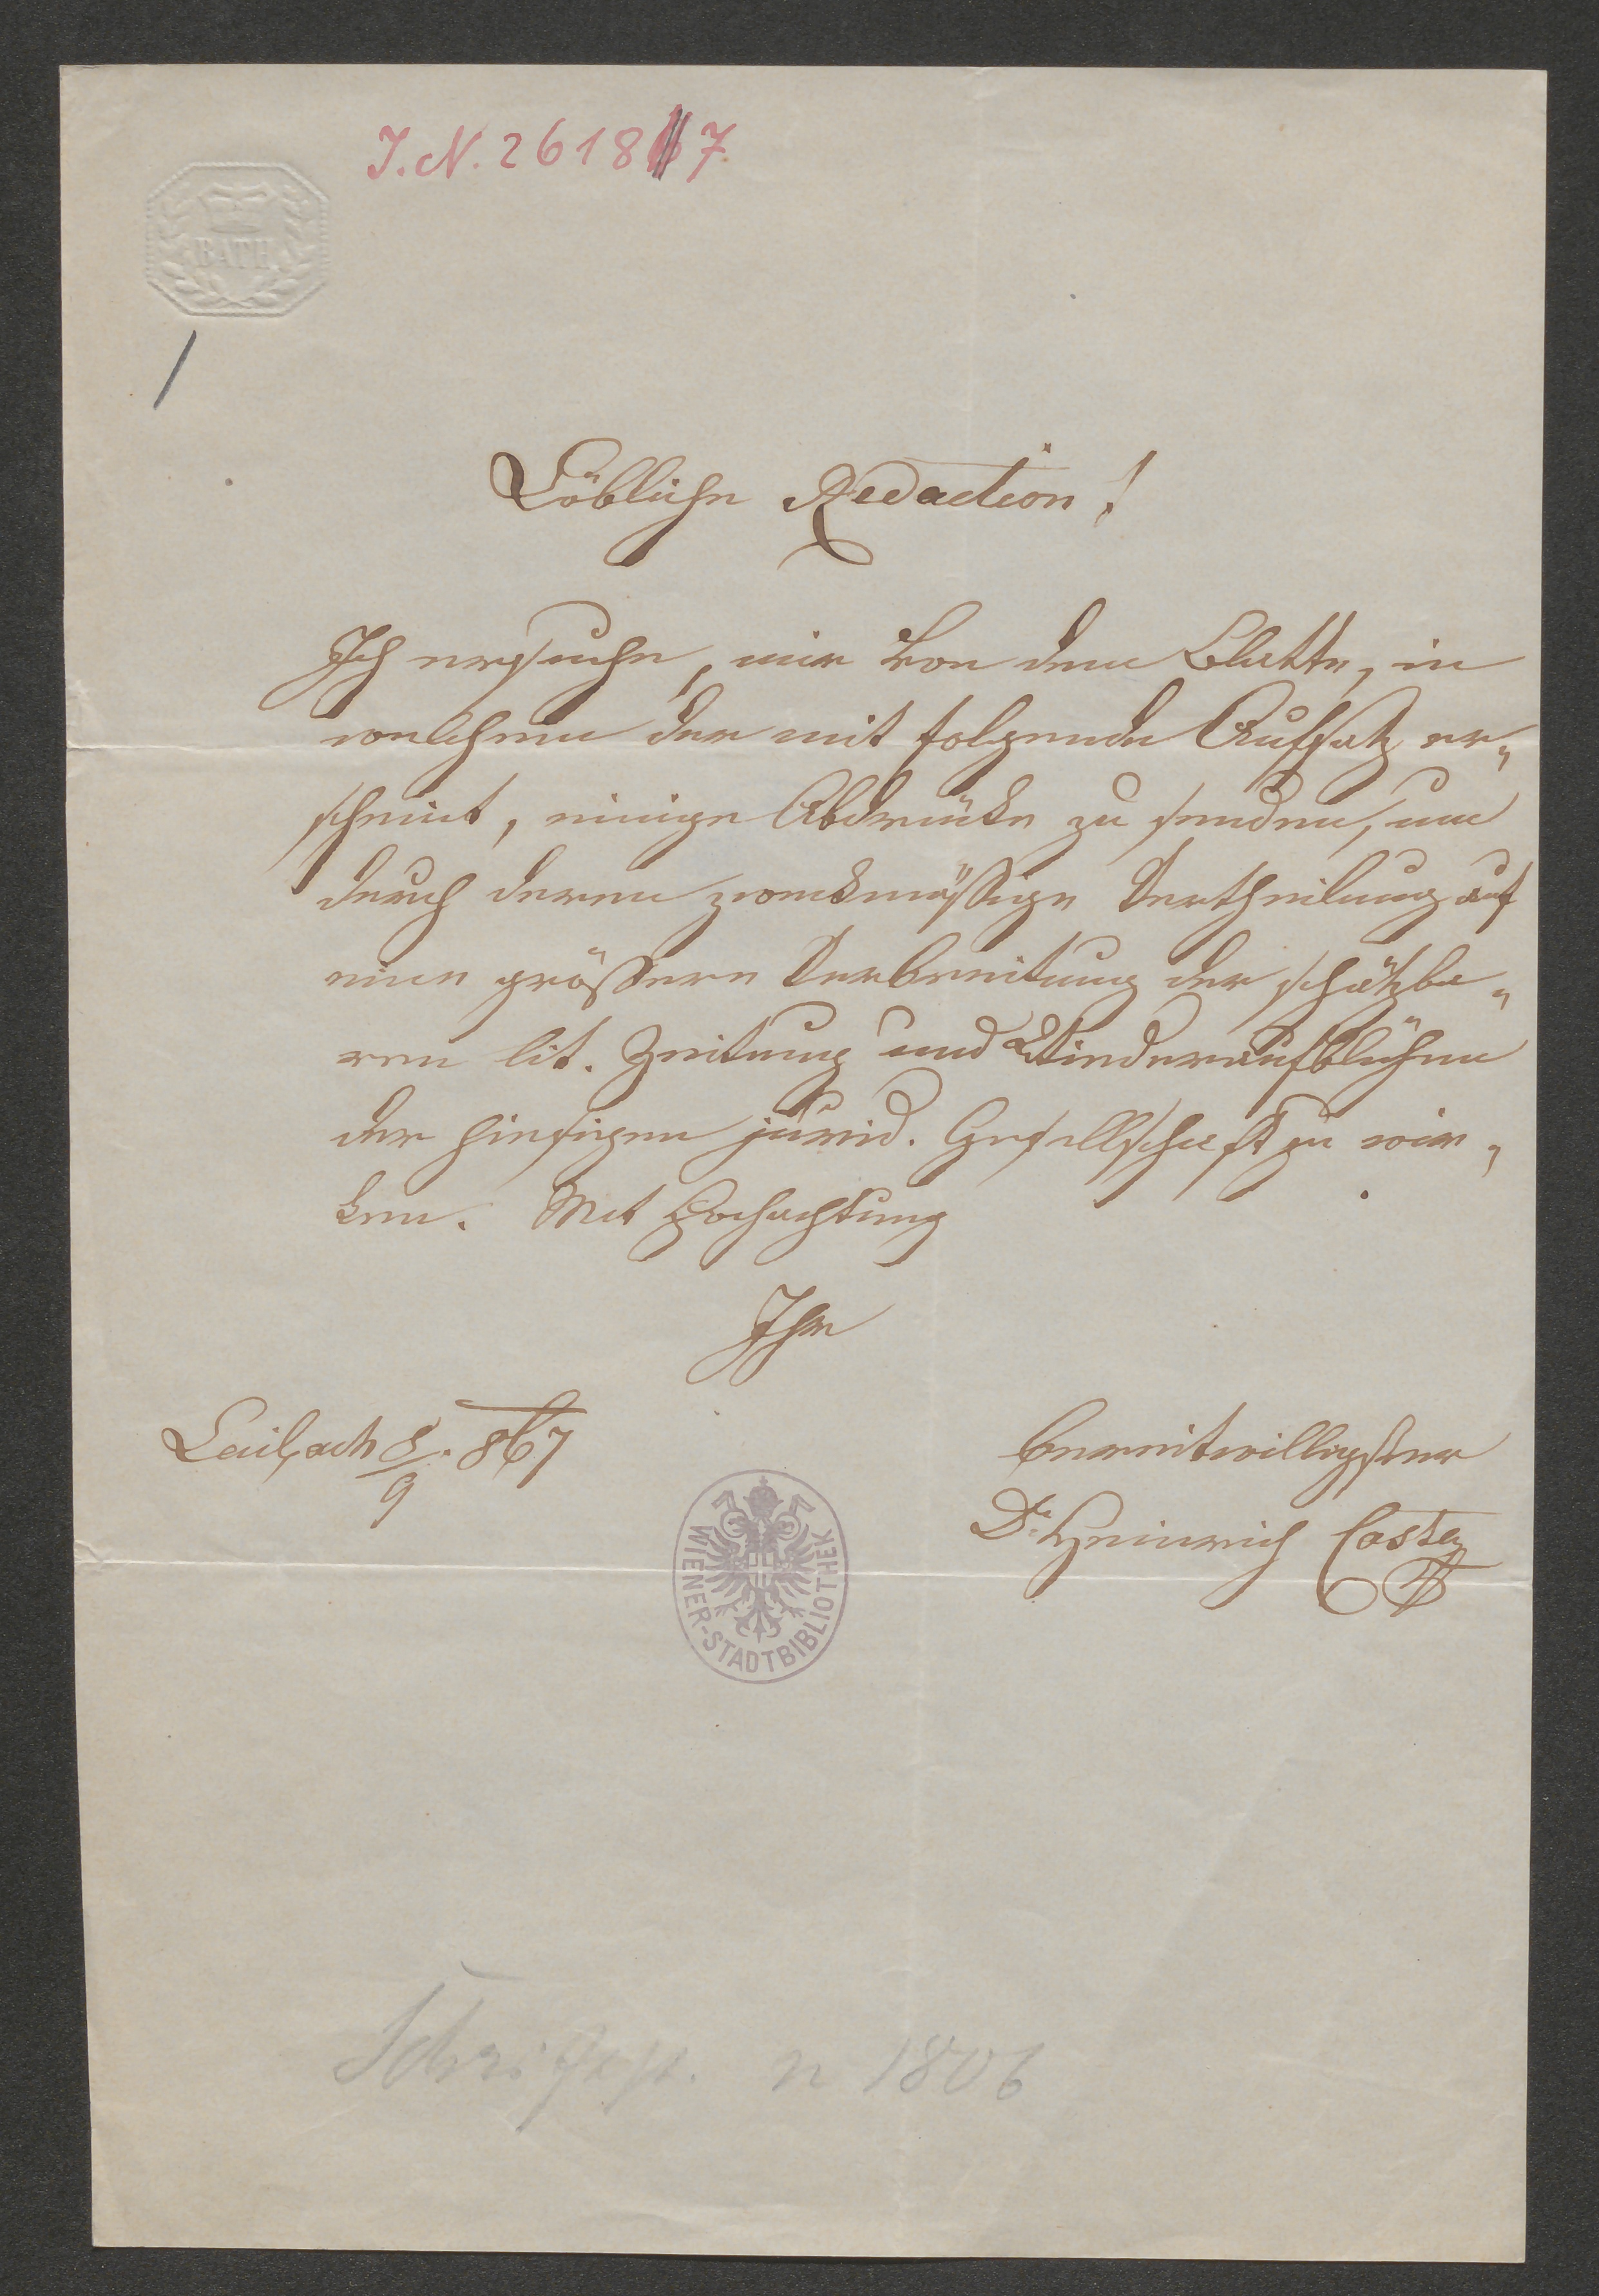 J. N. 26187
BATH
Löbliche Redaction!
Ich ersuche, mir von dem Blatte, in
welchem der mit folgende Aufsatz er„
scheint, einige Abdrücke zu senden, um
durch deren zweckmäßige Vertheilung auf
eine größere Verbreitung der schätzba„
ren lit. Zeitung und Wiederaufblühen
der hiesigen jurid. Gesellschaft zu wir„
ken. Mit Hochachtung
Ihr
Laibach 8/9. 867
bereitwilligster
Dr. Heinrich Costa
WIENER-STADTBIBLIOTHEK
n 1806